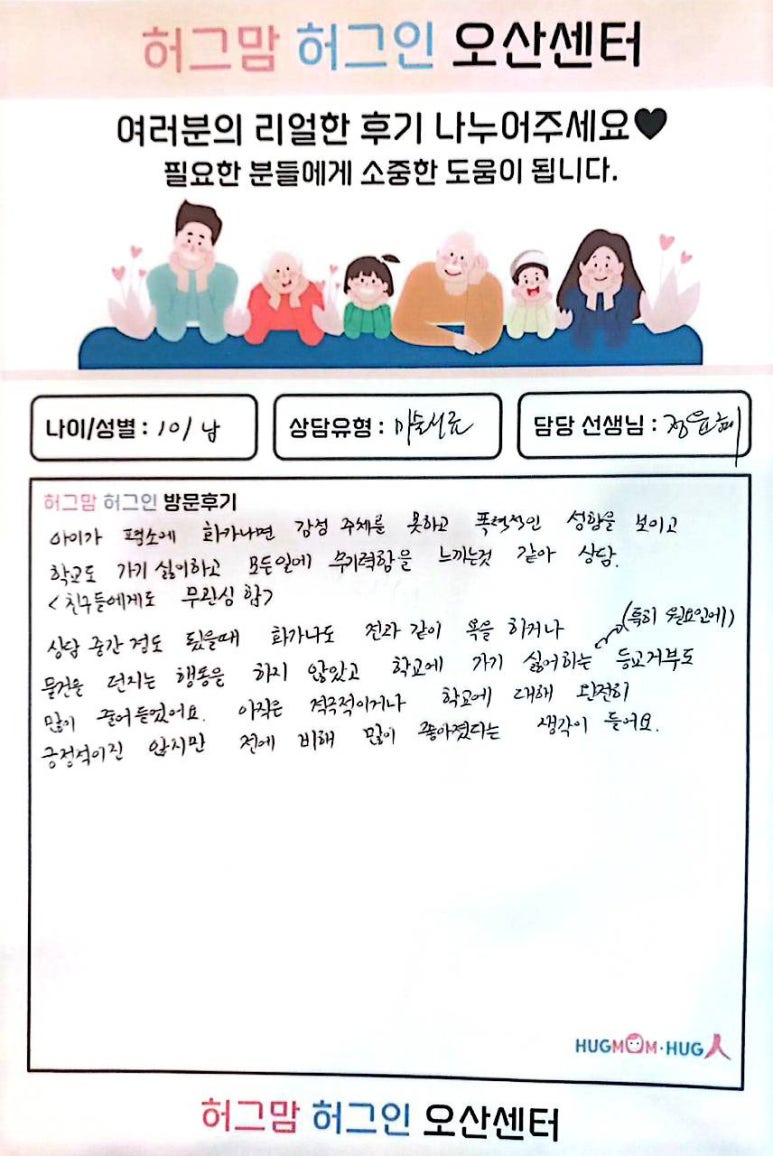 허그맘 허그인 오산센터
여러분의 리얼한 후기 나누어주세요♥
필요한 분들에게 소중한 도움이 됩니다.
나이/성별 : 10/ 남
상담유형 : 미술치료
담당 선생님 : 정윤혜
허그맘 허그인 방문후기
아이가 평소에 화가나면 감정 주체를 못하고 폭력적인 성향을 보이고
학교도 가기 싫어하고 모든일에 무기력함을 느끼는것 같아 상담.
<친구들에게도 무관심 함>
상담 중간 정도 됐을때 화가나도 전과 같이 욕을 하거나 (특히 월요일에)
물건을 던지는 행동은 하지 않았고 학교에 가기 싫어하는 등교거부도
많이 줄어들었어요. 아직은 적극적이거나 학교에 대해 완전히
긍정적이진 않지만 전에 비해 많이 좋아졌다는 생각이 들어요.
HUGMOM·HUG人
허그맘 허그인 오산센터